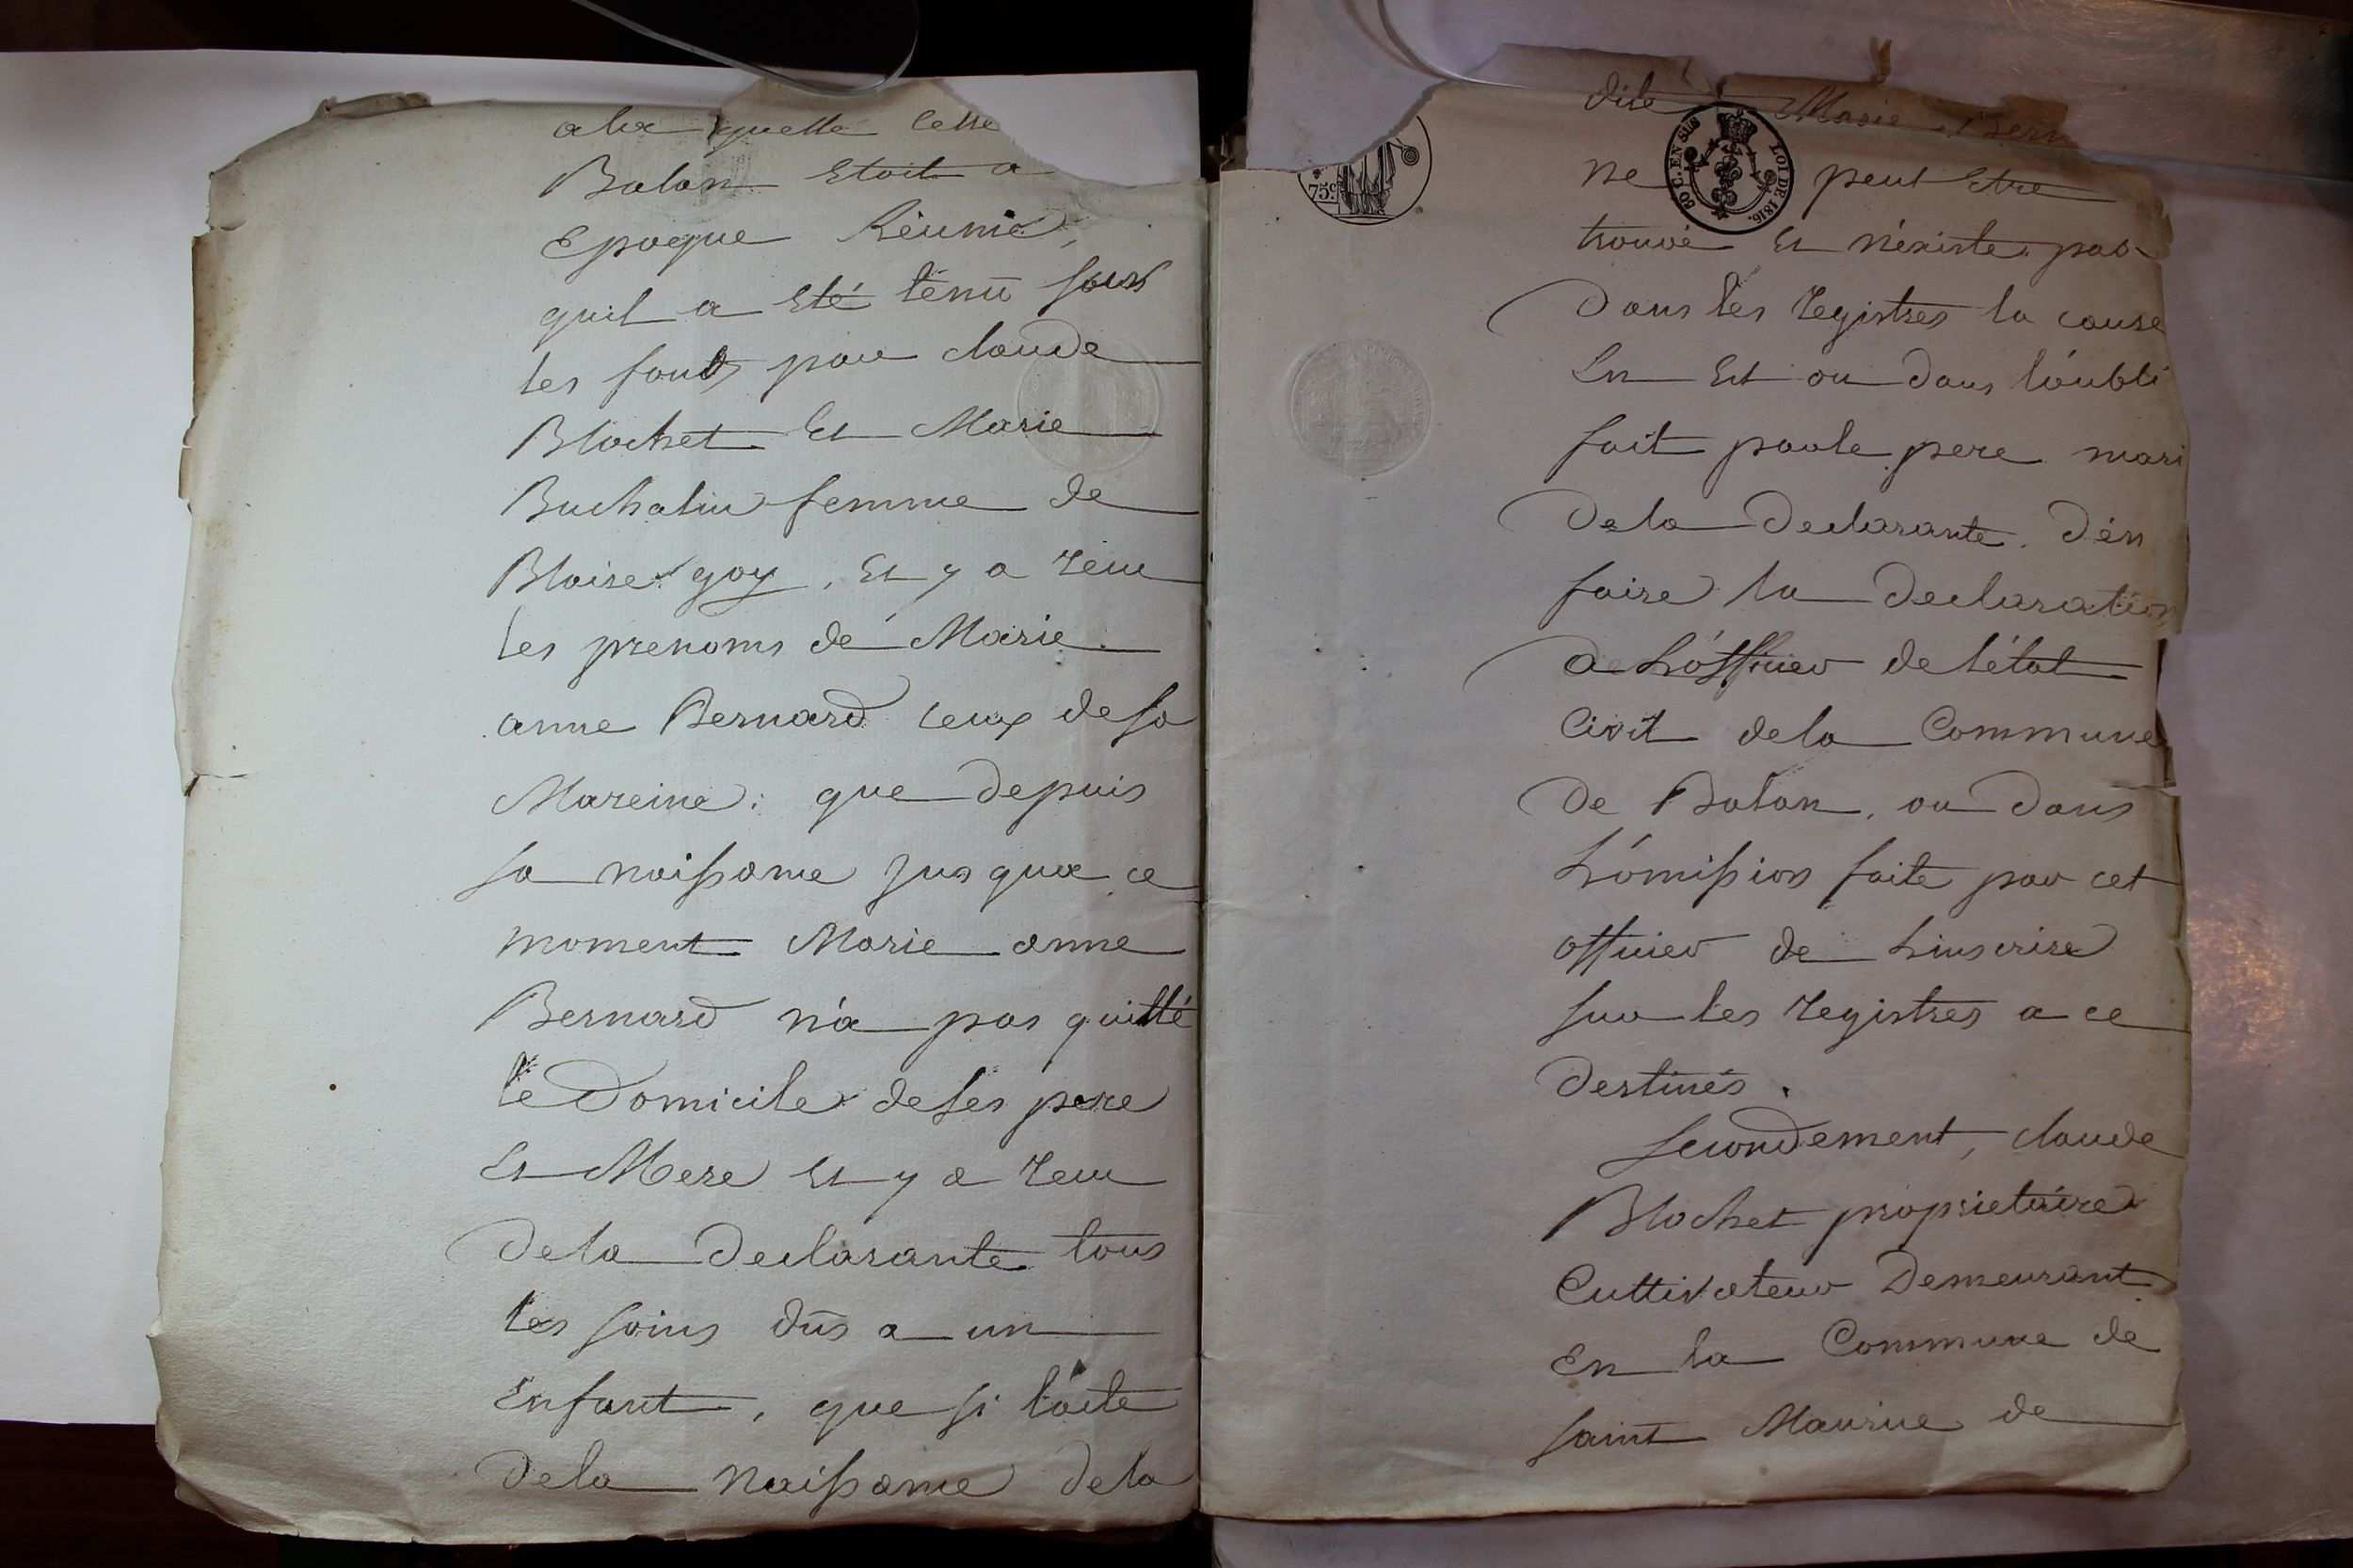 ala quelle Cette
Balan Etoit a
Epoque Réunie,
quil a Eté tenu sous
les fonds par claude
Blochet Et Marie
Buchalin femme de
Blaise goy, Et y a reçu
les prenoms de Marie
anne Bernard ceux de sa
Mareine: que depuis
sa naissance Jusqua ce
moment Marie anne
Bernard n'a pas quitté
le Domicile de ses pere
Et Mere Et y a reçu
Dela Declarante tous
les soins dus a un
Enfant, que si l'acte
Dela Naissance dela
dite Marie Bern
75 c.
50 C. EN SUS
LOI DE 1816.
ne peut Etre
trouvé Et n'éxiste pas
Dans les registres la cause
En Est ou dans l'oubli
fait par le pere mari
Dela Declarante. D'en
faire la Declaration
a L'officier de l'état
Civil dela Commune
De Balan, ou Dans
L'omission faite par cet
officier de L'inscrire
sur les registres a ce
Destinés.
Secondement, claude
Blochet proprietaire
Cultivateur Demeurant
En la Commune de
Saint Maurice de